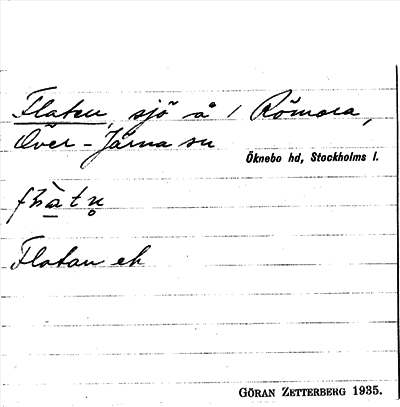 Flaten, sjö å / Römora,
Över-Järna sn
Öknebo hd, Stockholms l.
Flatan ek
GÖRAN ZETTERBERG 1935.